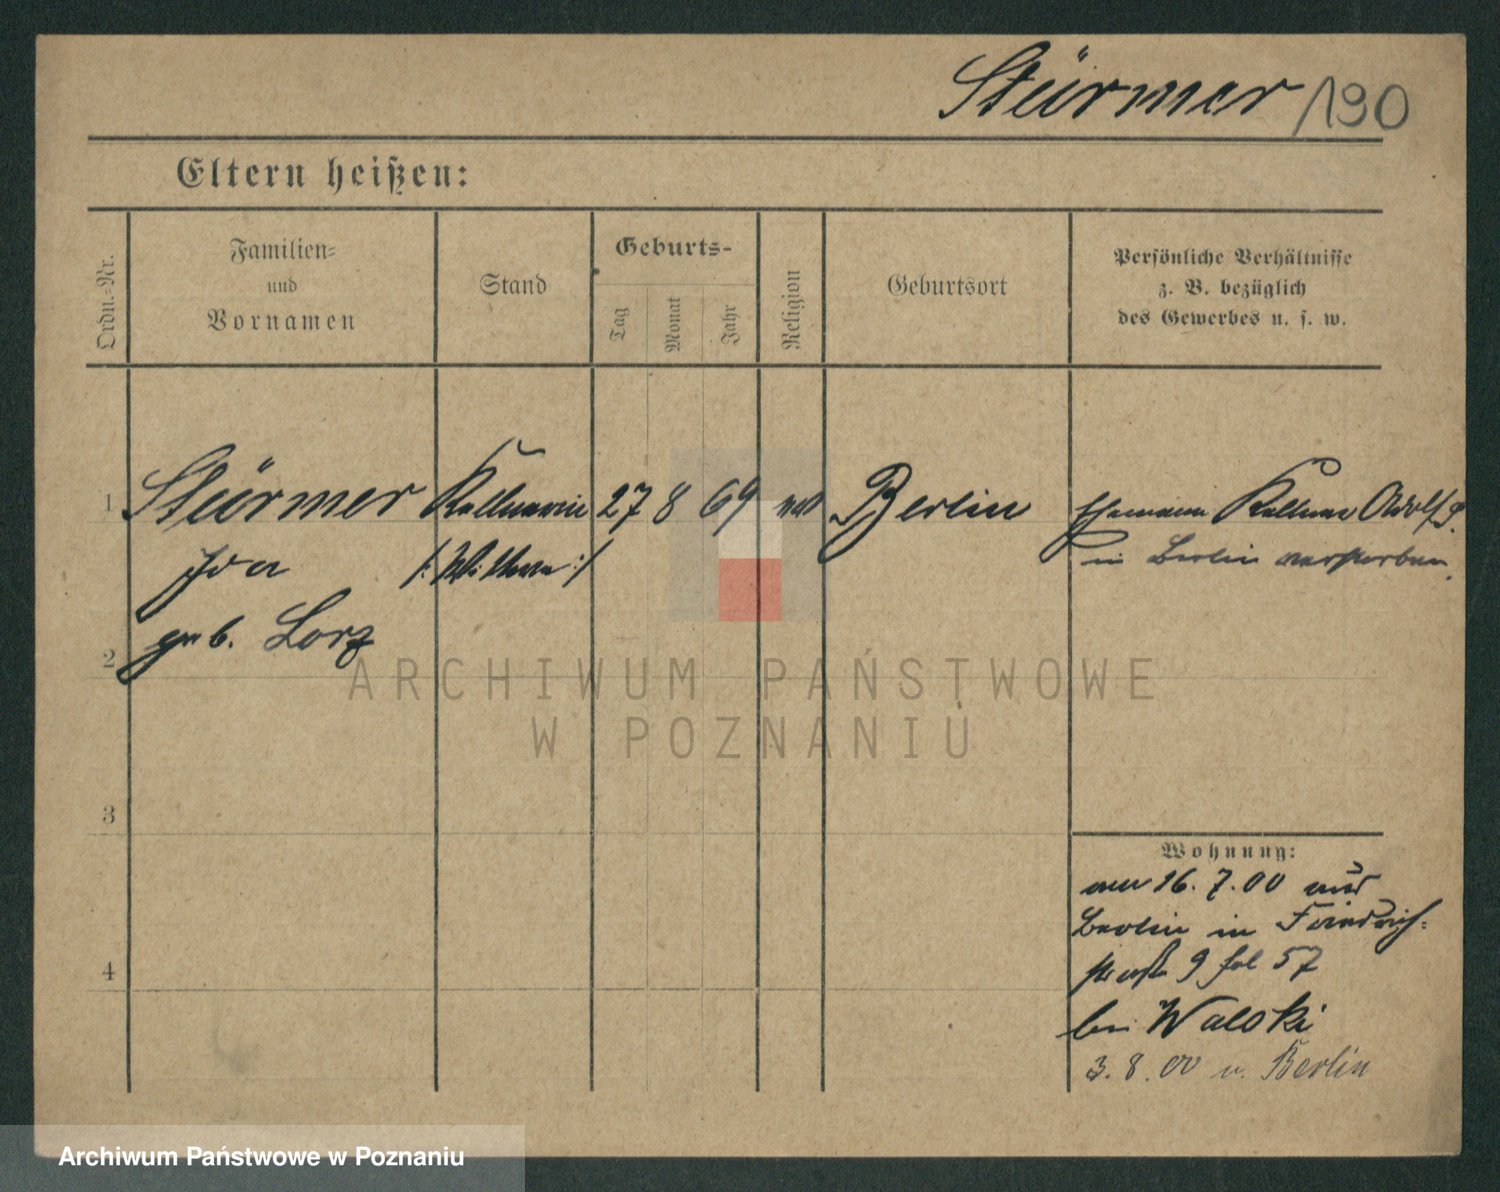 Stürmer /190
Eltern heißen:
Ordn.-Nr.
Familien-
und
Vornamen
Stand
Geburts-
Tag
Monat
Jahr
Religion
Geburtsort
Persönliche Verhältnisse
z. B. bezüglich
des Gewerbes u. s. w.
1 Stürmer Kellnerin 27 8 69 Berlin Ehemann Kellner Adolf S.
Ida /: Wittwe :/ in Berlin verstorben.
geb. Lorz
2
3
4
Wohnung:
am 16. 7. 00 aus
Berlin in Friedrich-
straße 9 fol 57
bei Walski
3. 8. 00 n. Berlin
ARCHIWUM PAŃSTWOWE
W POZNANIU
Archiwum Państwowe w Poznaniu